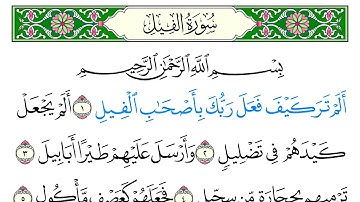 سُورَةُ الْفِيلِ
بِسْمِ اللَّهِ الرَّحْمَٰنِ الرَّحِيمِ
أَلَمْ تَرَ كَيْفَ فَعَلَ رَبُّكَ بِأَصْحَابِ الْفِيلِ ١ أَلَمْ يَجْعَلْ
كَيْدَهُمْ فِي تَضْلِيلٍ ٢ وَأَرْسَلَ عَلَيْهِمْ طَيْرًا أَبَابِيلَ ٣
تَرْمِيهِم بِحِجَارَةٍ مِّن سِجِّيلٍ ٤ فَجَعَلَهُمْ كَعَصْفٍ مَّأْكُولٍ ٥